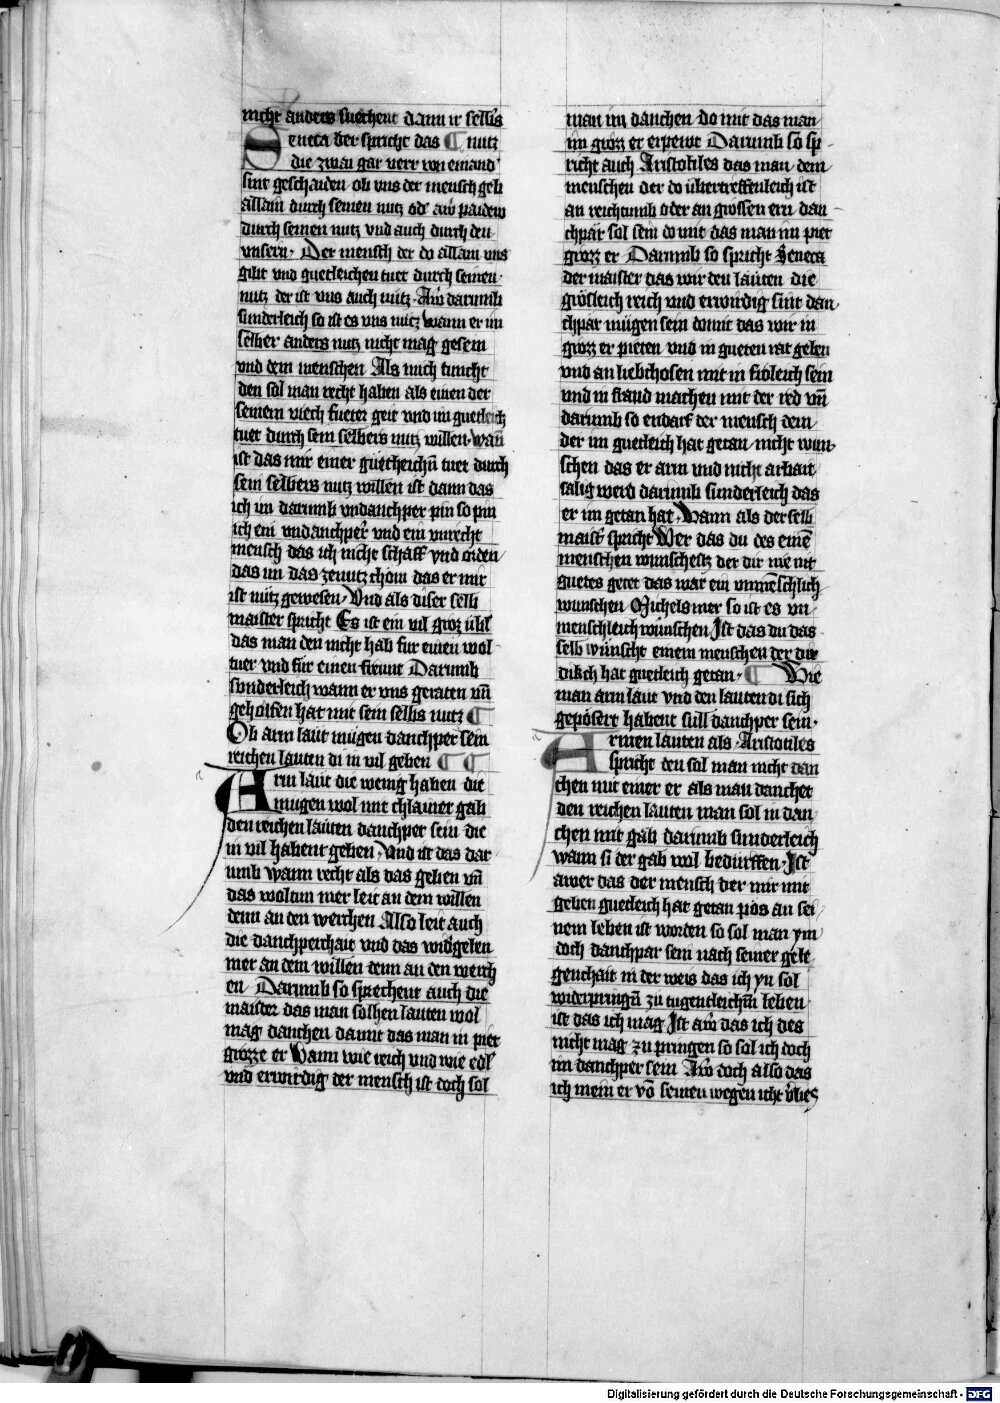 nicht anders suechent dann ir selbs
Seneca der spricht das ¶ nutz
die zwai gar verr von einand'
sint geschaiden ob vns der mensch geb
allain durch seinen nutz od' aw paidew
durch seinen nutz vnd auch durch den
vnsern · Der mensch der do allain vns
gibt vnd guetleichen tuet durch seinen
nutz der ist vns auch nütz · Aw darumb
sunderleich so ist es vns nutz wann er im
selber anders nutz nicht mag gesein
vnd dem menschen Als mich tuncht
den sol man recht haben als einen der
seinem viech fueter geit vnd im guetleich
tuet durch sein selbers nutz willen · wan̄
ist das mir einer guetleichn̄ tuet durch
sein selbers nutz willen ist dann das
ich im darumb vndanchper pin so pin
ich ein vndanchper vnd ein vnrecht
mensch das ich nicht schaff vnd orden
das im das zenutz chöm das er mir
ist nütz gewesen · Vnd als diser selb
maister spricht Es ist ein vil groz übl
das man den nicht hab fur einen wol
tuer vnd für einen freunt Darumb
sunderleich wann er vns geraten vn̄
geholfen hat mit sein selbs nutz ¶
Ob arm läut mügen danchper sein
reichen läuten di in vil geben ¶ ¶
Arm läut die wenig haben die
mugen wol mit chlainer gab
den reichen läuten danchper sein die
in vil habent geben · Vnd ist das dar
umb wann recht als das geben vn̄
das woltun mer leit an dem willen
denn an den werchen Also leit auch
die danchperchait vnd das widergeben
mer an dem willen denn an den werch
en Darumb so sprechent auch die
maister das man solhen läuten wol
mag danchen damit das man in piet
grozze er Wann wie reich vnd wie edl
vnd erwirdig der mensch ist doch sol
man im danchen do mit das man
im groz er erpeut Darumb so sp
richt auch Aristotiles das man dem
menschen der do übertreffenleich ist
an reichtumb oder an grossen ern dan
chpär sol sein do mit das man im piet
groz er Darumb so spricht Seneca
der maister das wir den läuten die
grösleich reich vnd erwirdig sint dan
chpär mügen sein domit das wir in
groz er pieten vnd in gueten rat geben
vnd an liebchosen mit in fröleich sein
vnd in fräud machen mit der red vn̄
darumb so endarf der mensch dem
der im guetleich hat getan nicht wun
schen das er arm vnd nicht arbait
salig werd darumb sunderleich das
er im getan hat · Wann als der selb
maist' spricht Wer das du des eine̅
menschen wunschestz der dir nie nit
guetes getet das wär ein vnme̅schlich
wunschen Michels mer so ist es vn
menschleich wünschen Jst das du das
selb wünscht einem menschen der dir
dikch hat guetleich getan · ¶ Wie
man arm läut vnd den läuten di sich
gepösert habent süll danchper sein ·
Armen läuten als Aristotiles
spricht den sol man nicht dan
chen mit einer er als man danchet
den reichen läuten man sol in dan
chen mit gab darumb sunderleich
wann si der gab wol bedürffen · Jst
awer das der mensch der mir mit
geben guetleich hat getan pös an sei
nem leben ist worden so sol man ym
doch danchpär sein nach seiner gele
genchait in der weis das ich yn sol
widerpringn̄ zu tugentleichm̄ leben
ist das ich mag Jst aw das ich des
nicht mag zu pringen so sol ich doch
im danchper sein Aw doch also das
ich mein er vo̅ seinen wegen icht vlies
Digitalisierung gefördert durch die Deutsche Forschungsgemeinschaft - DFG